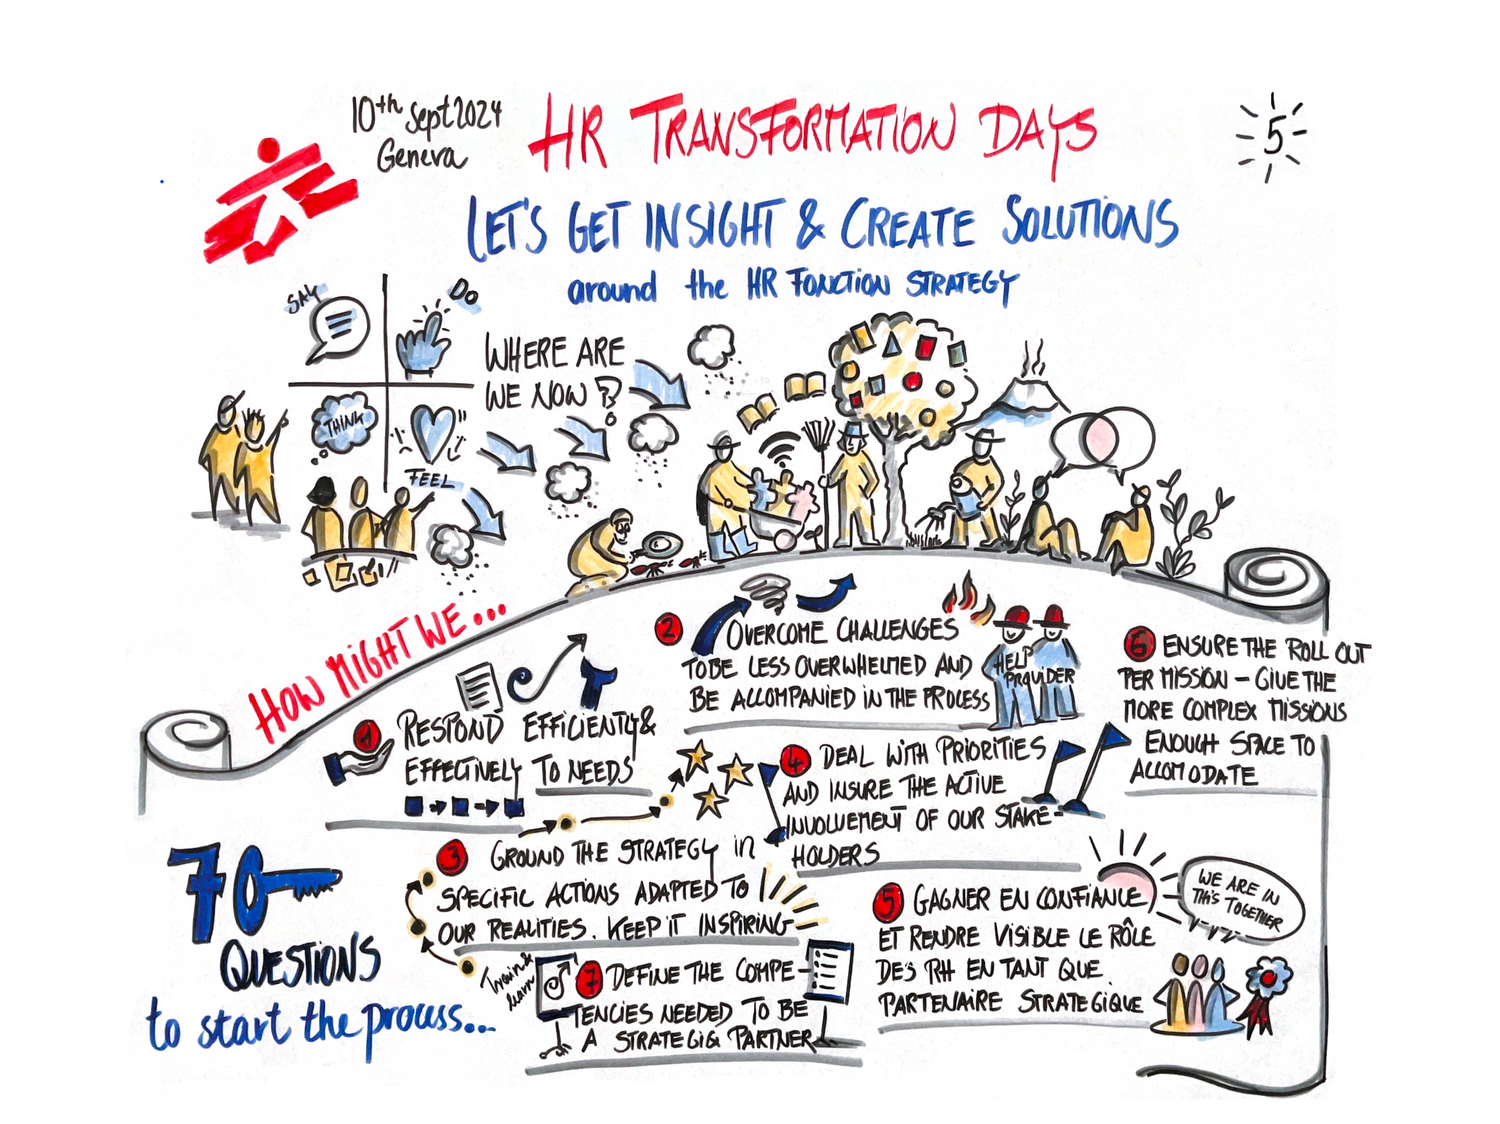 10th Sept 2024
Geneva
HR TRANSFORMATION DAYS
5
LET'S GET INSIGHT & CREATE SOLUTIONS
around the HR FONCTION STRATEGY
SAY
DO
THINK
FEEL
WHERE ARE
WE NOW ?
HOW MIGHT WE...
1 RESPOND EFFICIENTLY &
EFFECTIVELY TO NEEDS
2 OVERCOME CHALLENGES
TO BE LESS OVERWHELMED AND
BE ACCOMPANIED IN THE PROCESS
HELP
PROVIDER
3 GROUND THE STRATEGY in
SPECIFIC ACTIONS ADAPTED TO
OUR REALITIES. KEEP IT INSPIRING
4 DEAL WITH PRIORITIES
AND INSURE THE ACTIVE
INVOLVEMENT OF OUR STAKE-
HOLDERS
5 GAGNER EN CONFIANCE
ET RENDRE VISIBLE LE RÔLE
DES RH EN TANT QUE
PARTENAIRE STRATEGIQUE
WE ARE IN
THIS TOGETHER
6 ENSURE THE ROLL OUT
PER MISSION - GIVE THE
MORE COMPLEX MISSIONS
ENOUGH SPACE TO
ACCOMODATE
Train &
learn
7 DEFINE THE COMPE-
TENCIES NEEDED TO BE
A STRATEGIG PARTNER
70
QUESTIONS
to start the process...